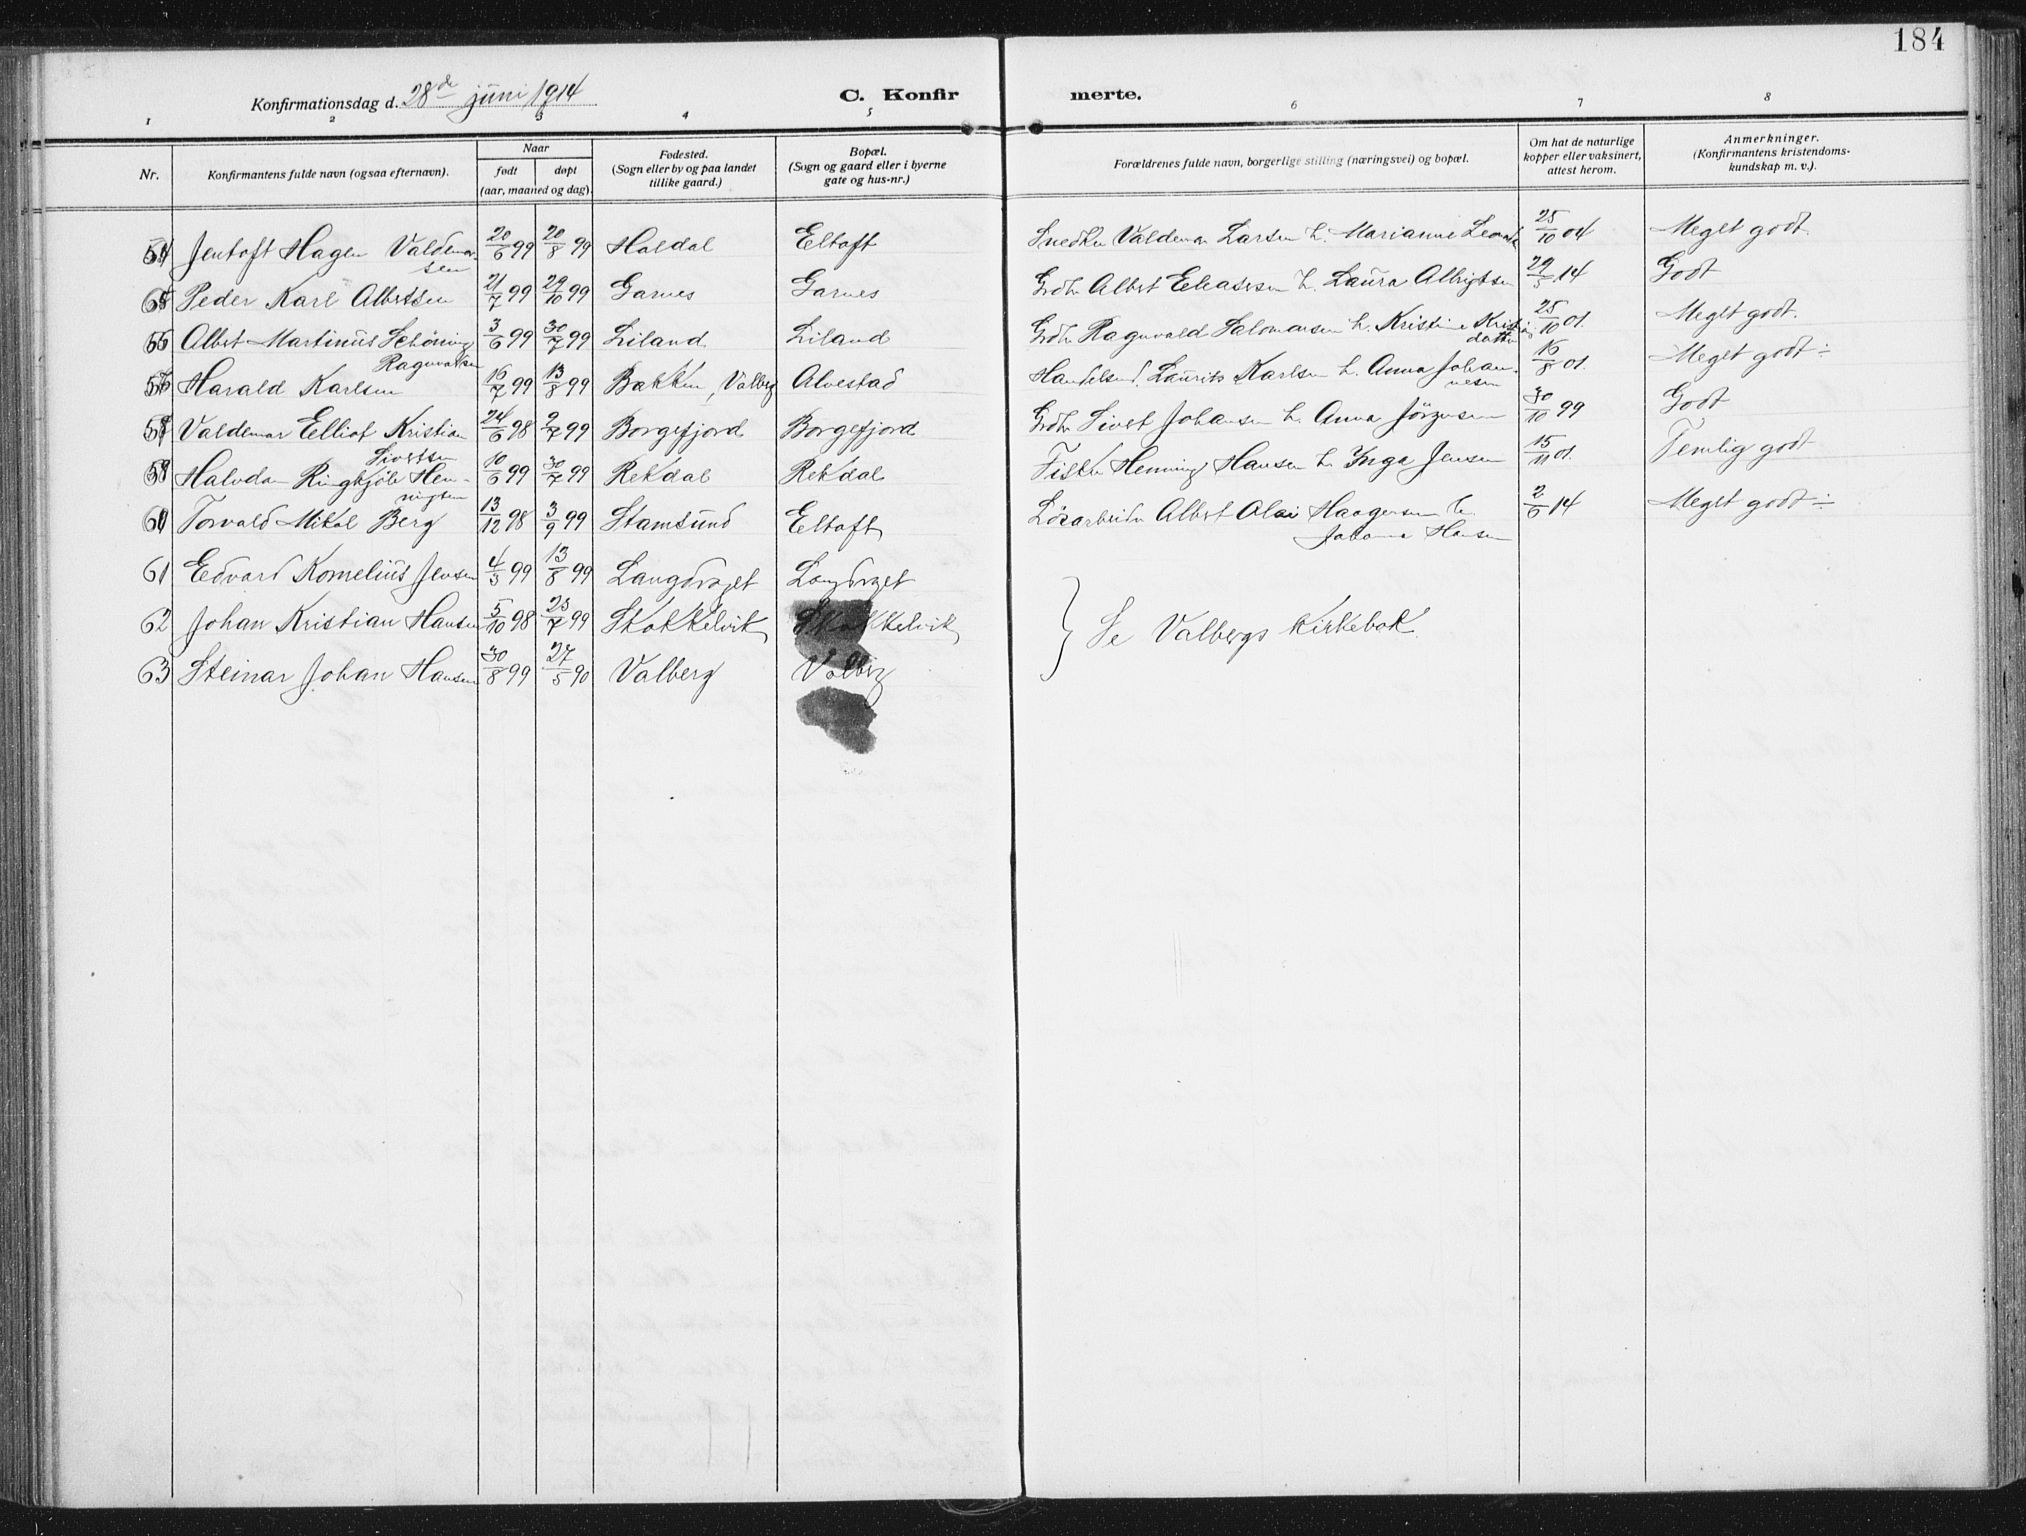 184
Konfirmationsdag d. 28de juni 1914
C. Konfirmerte.
1 2 3 4 5 6 7 8
Nr.
Konfirmantens fulde navn (ogsaa efternavn).
Naar
født døpt
(aar, maaned og dag).
Fødested.
(Sogn eller by og paa landet
tillike gaard.)
Bopæl.
(Sogn og gaard eller i byerne
gate og hus-nr.)
Forældrenes fulde navn, borgerlige stilling (næringsvei) og bopæl.
Om hat de naturlige
kopper eller vaksinert,
attest herom.
Anmerkninger.
(Konfirmantens kristendoms-
kundskap m. v.).
54 Jentoft Hagen Valdemar- 20/6 99 20/8 99 Holdal Eltoft Snedker Valdemar Larsen h. Marianne 25/10 04 Meget godt
sen
Peder Karl Albertsen 21/7 99 29/10 99 Garnes Garnes Grdbr Albert Eleasesen h. Laura Albrigtsen 29/5 14 Godt
56 Albert Martinus Schöning 3/6 99 30/7 99 Liland Liland Grdbr Ragnvald Salomonsen h. Kristine Kristi- 25/10 01. Meget godt.
Ragnvaldsen datter
57 Harald Karlsen 16/7 99 13/8 99 Bakken, Valberg Alvestad Handelsmd. Laurits Karlsen h. Anna Johan- 16/8 01. Meget godt ÷
nesen
58 Valdemar Elliot Kristian 24/6 98 2/7 99 Borgefjord Borgefjord Grdbr Sivert Johansen h. Anna Jörgensen 30/10 99 Godt
Sivertsen
59 Halvdan Ringkjöb Hen- 10/6 99 30/7 99 Rekdal Rekdal Fisker Henning Hansen h. Inga Jensen 15/11 01. Temlig godt
ningsen
60 Torvald Mikal Berg 13/12 98 3/9 99 Stamsund Eltoft Lösarbeider Albert Olai Haagensen h. 2/6 14 Meget godt ÷
Johanna Hansen
61 Edvard Kornelius Jensen 4/3 99 13/8 99 Langdraget Langdraget
62 Johan Kristian Hansen 5/10 98 23/7 99 Skokkelvik Skokkelvik } Se Valbergs Kirkebok.
63 Steinar Johan Hansen 30/8 99 27/5 90 Valberg Valberg